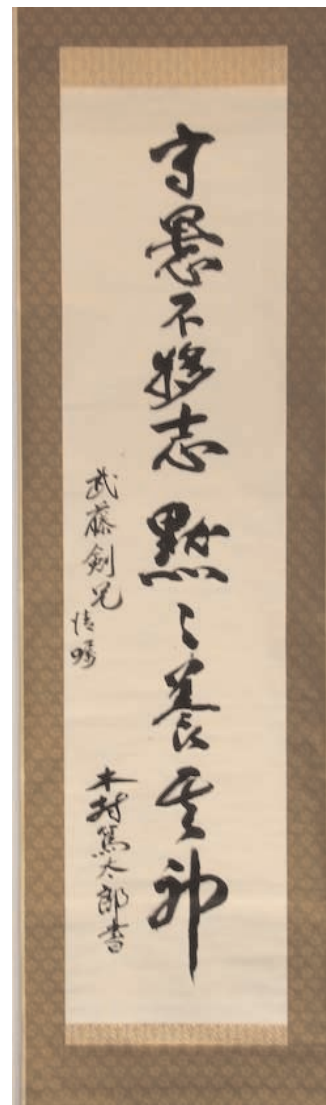 守愚不移志黙々養其神
武藤剣兄
嘱
木村篤太郎書